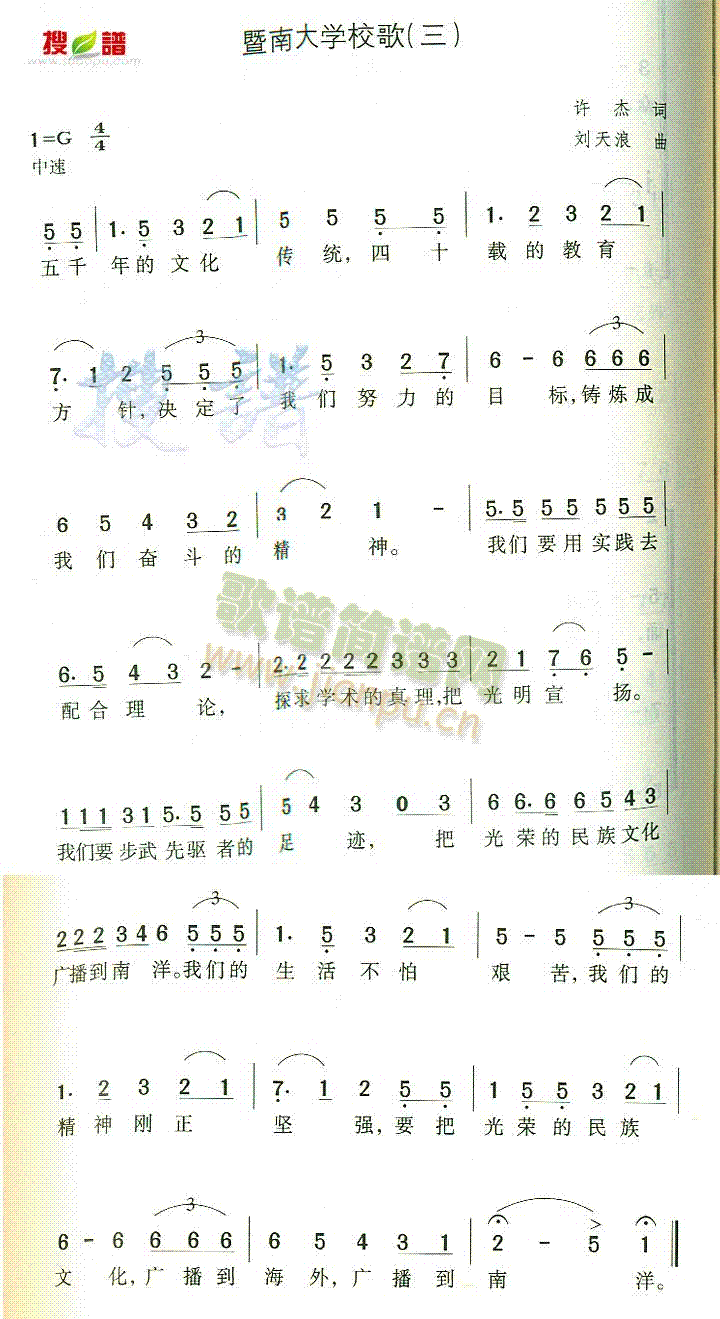 搜谱
www.sooopu.com
暨南大学校歌(三)
许杰 词
1=G 4/4
刘天浪 曲
中速
5 5 | 1· 5 3 2 1 | 5 5 5 5 | 1· 2 3 2 1 |
五千 年的文化 传统,四十 载的教育
7· 1 2 5 5 5 | 1· 5 3 2 7 | 6 - 6 6 6 6 |
方针,决定了 我们努力的 目标,铸炼成
6 5 4 3 2 | 3 2 1 - | 5· 5 5 5 5 5 5 |
我们奋斗的 精神。 我们要用实践去
6· 5 4 3 2 - | 2· 2 2 2 2 3 3 3 | 2 1 7 6 5 - |
配合理论, 探求学术的真理,把 光明宣扬。
1 1 1 3 1 5· 5 5 5 | 5 4 3 0 3 | 6 6· 6 6 5 4 3 |
我们要步武先驱者的 足迹, 把 光荣的民族文化
2 2 2 3 4 6 5 5 5 | 1· 5 3 2 1 | 5 - 5 5 5 5 |
广播到南洋。我们的 生活不怕 艰苦,我们的
1· 2 3 2 1 | 7· 1 2 5 5 | 1 5 5 3 2 1 |
精神刚正 坚强,要把 光荣的民族
6 - 6 6 6 6 | 6 5 4 3 1 | 2 - 5 1 ‖
文化,广播到 海外,广播到 南洋。
歌谱简谱网
www.jianpu.cn
搜谱